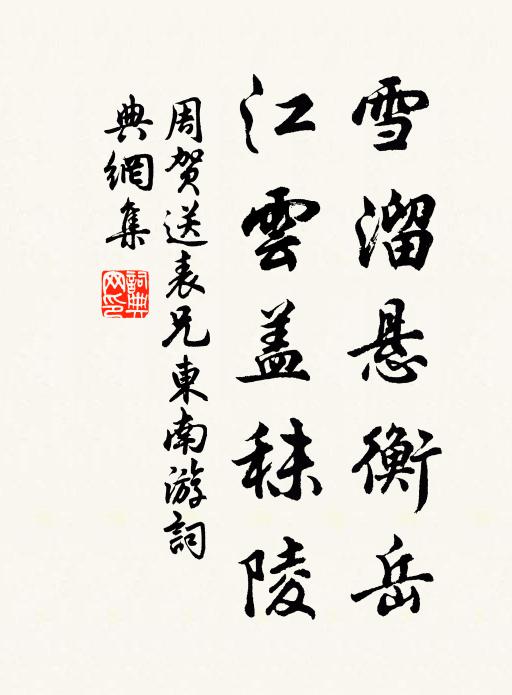 雪溜悬衡岳
江雲盖秣陵
周贺送表兄東南游詞
典網集
詞典网印